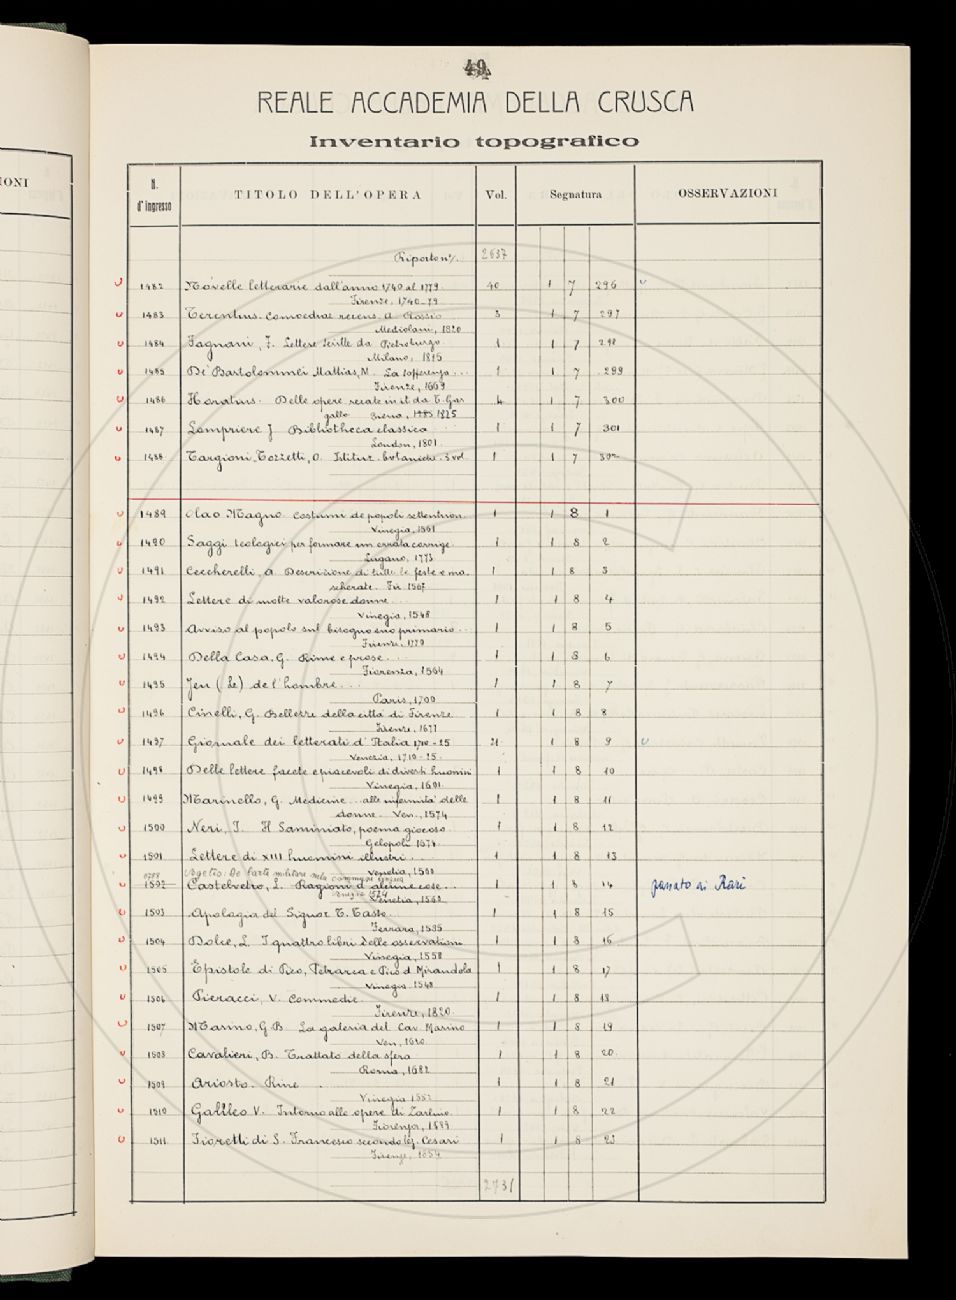 IONI
49
REALE ACCADEMIA DELLA CRUSCA
Inventario topografico
N. d'ingresso TITOLO DELL'OPERA Vol. Segnatura OSSERVAZIONI
Riporto n°/. 2637
1482 Novelle letterarie dall'anno 1740 al 1779 40 1 7 296
Firenze, 1740-79
1483 Terentius. Comoediae recens. a Rossio 3 1 7 297
Mediolani, 1820
1484 Fagnani, F. Lettere scritte da Pietroburgo 1 1 7 298
Milano, 1815
1485 De' Bartolommei Mathias, M. La sofferenza... 1 1 7 299
Firenze, 1669
1486 Horatius. Delle opere recate in it. da T. Gar 4 1 7 300
gallo 1825
1487 Lempriere J. Bibliotheca classica 1 1 7 301
London, 1801
1488 Targioni, Tozzetti, O. Istituz. botaniche. 3 vol. 1 1 7 302
1489 Olao Magno Costumi de popoli settentrion. 1 1 8 1
Vinegia, 1561
1490 Saggi teologici per formare un errata corrige 1 1 8 2
Lugano, 1773
1491 Ceccherelli, A. Descrizione di tutte le feste e ma. 1 1 8 3
scherate. Fir. 1567
1492 Lettere di molte valorose donne... 1 1 8 4
Vinegia, 1548
1493 Avviso al popolo sul bisogno suo primario... 1 1 8 5
Firenze, 1779
1494 Della Casa, G. Rime e prose... 1 1 8 6
Fiorenza, 1564
1495 Jeu (Le) de l'hombre... 1 1 8 7
Paris, 1709
1496 Cinelli, G. Bellezze della città di Firenze 1 1 8 8
Firenze, 1677
1497 Giornale dei letterati d'Italia 1710-25 21 1 8 9
Venezia, 1710-25.
1498 Delle lettere facete e piacevoli di diversi huomini 1 1 8 10
Vinegia, 1601.
1499 Marinello, G. Medicine... alle infermità delle 1 1 8 11
donne. Ven., 1574
1500 Neri, I. Il Saminiato, poema giocoso 1 1 8 12
Gelopoli
1501 Lettere di XIII huomini illustri... 1 1 8 13
Venetia, 1560
Vegetio: De l'arte militare nela commune lingua
1502 Castelvetro, L. Ragioni d'alcune cose... 1 1 8 14 passato ai Rari
Venetia,
1503 Apologia del Signor T. Tasso... 1 1 8 15
Ferrara, 1585
1504 Dolce, L. I quattro libri delle osservationi 1 1 8 16
Vinegia, 1558
1505 Epistole di Pico, Petrarca e Pico d. Mirandola 1 1 8 17
Vinegia 1548
1506 Pieracci, V. Commedie. 1 1 8 18
Firenze, 1820
1507 Marino, G. B. La galeria del Cav. Marino 1 1 8 19
Ven., 1620
1508 Cavalieri, B. Trattato della sfera 1 1 8 20
Roma, 1682
1509 Ariosto. Rime 1 1 8 21
Vinegia 1552
1510 Galileo V. Intorno alle opere di Zarlino. 1 1 8 22
Fiorenza, 1589
1511 Fioretti di S. Francesco secondo lez. Cesari 1 1 8 23
Firenze, 1854
2731